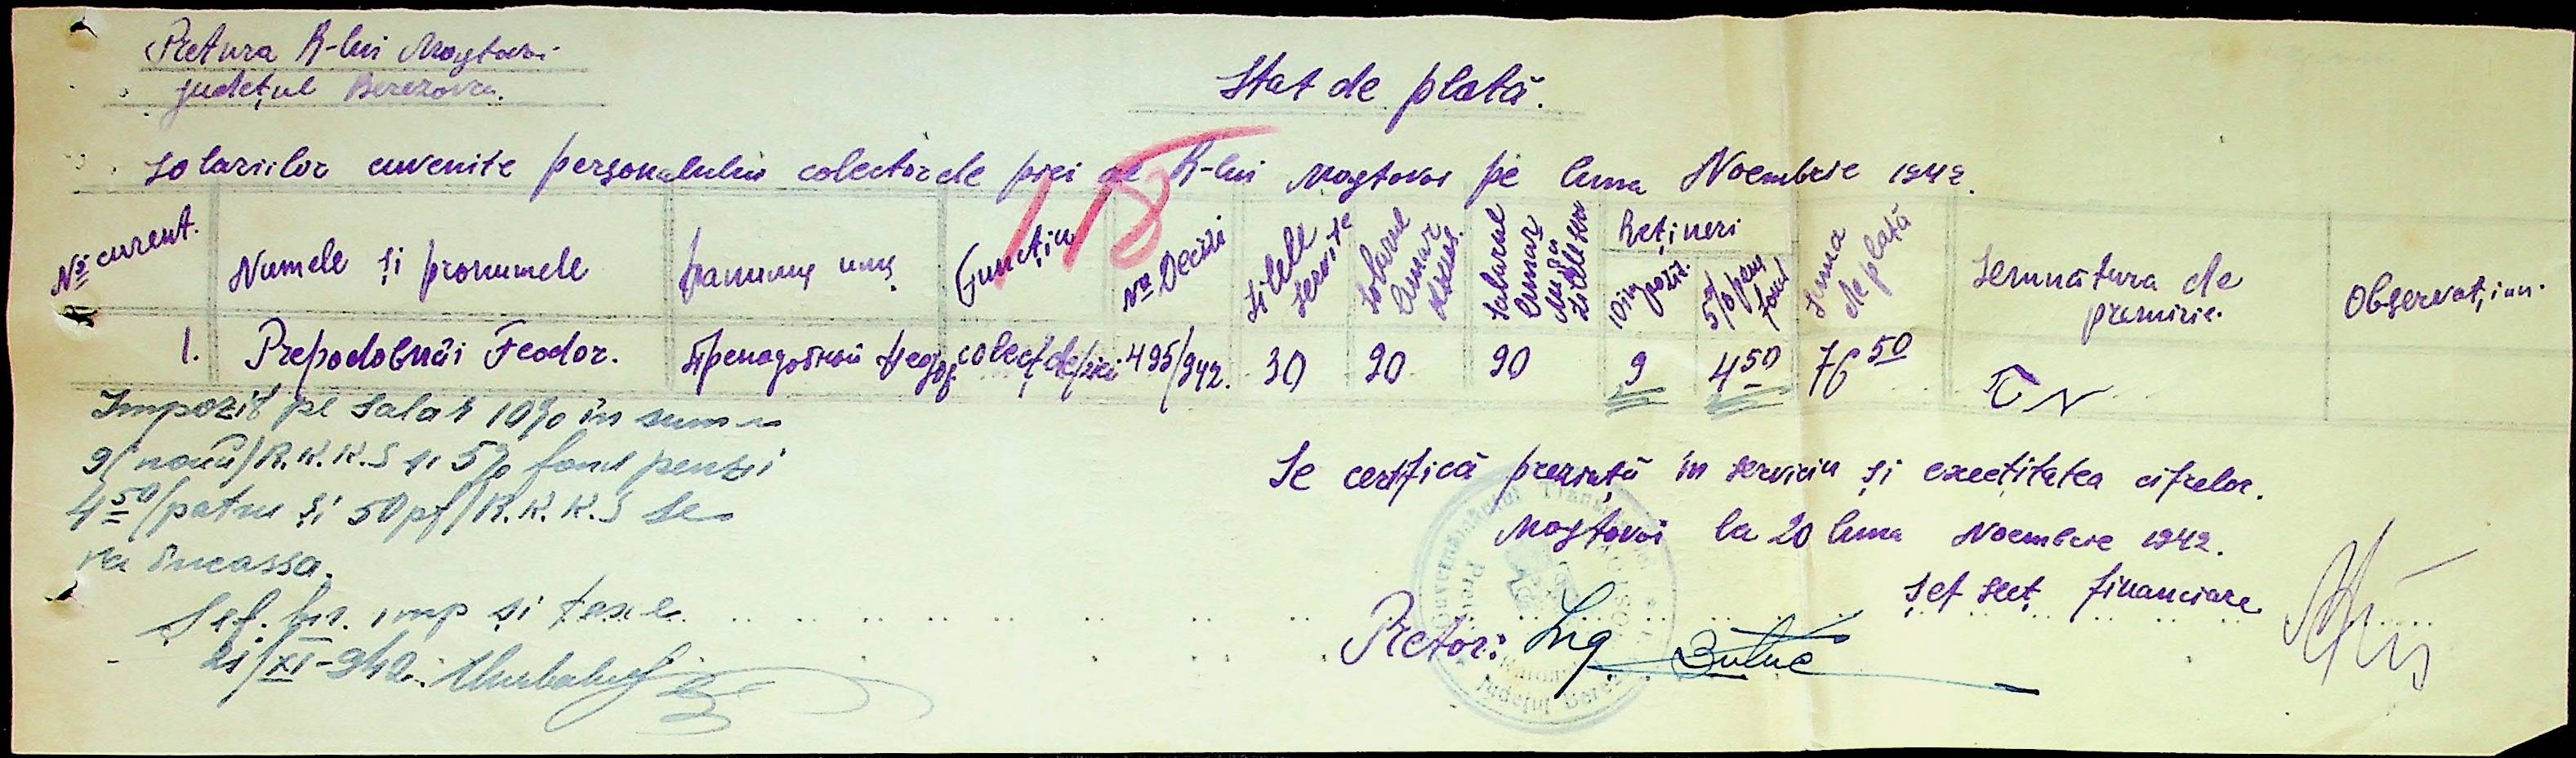 Pretura R-lui Mostovoi
județul Berezovca.
Stat de plată.
Salariilor cuvenite personalului colector de piei al R-lui Mostovoi pe luna Noembrie 1942.
118
№ curent.
Numele și pronumele
Фамилия имя
Funcția
№ Decizi
Zilele servite
Salarul lunar
Salarul lunar
Rețineri
10% impozit.
5% pens fond
Suma de plată
Semnătura de primirie.
Observațiuni.
1. Prepodobnâi Feodor. Преподобный Феодор colect de piei 495/942. 30 90 90 9 4 50 76 50
Impozit pe salar 10% în suma
9 (nouă) R.K.K.S și 5% fond penzii
4 50 (patru și 50 pf) R.K.K.S se
va încassa.
Șef. bir. imp și taxe
21/XI-942.
Se certifică prezința în serviciu și exectitatea cifrelor.
Mostovoi la 20 luna Noembrie 1942.
Șef sect financiare
Pretor: Ing